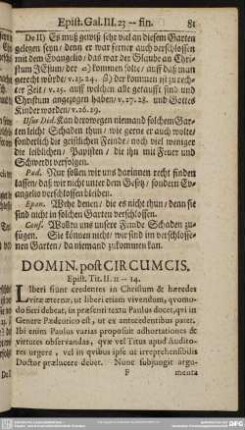 Epist. Gal. III. 23 – fin. 81
De II) Es muß gewiß sehr viel an diesem Garten
gelegen seyn / denn er war ferner auch verschlossen
mit dem Evangelio / das war der Glaube an Chri-
stum JEsum / der α) kommen solte / auff daß man
gerecht würde / v. 23. 24. β) der kommen ist zu rech-
ter Zeit / v. 25. auff welchen alle getaufft sind und
Christum angezogen haben / v. 27. 28. und Gottes
Kinder worden / v. 26. 29.
Usus Did. Kan derowegen niemand solchem Gar-
ten leicht Schaden thun / wie gerne er auch wolte /
sonderlich die geistlichen Feinde / noch viel weniger
die leiblichen / Papisten / die ihn mit Feuer und
Schwerdt verfolgen.
Pæd. Nur sollen wir uns darinnen recht finden
lassen / daß wir nicht unter dem Gesetz / sondern Ev-
angelio verschlossen bleiben.
Epan. Wehe denen / die es nicht thun / denn sie
sind nicht in solchen Garten verschlossen.
Cons. Wollen uns unsere Feinde Schaden zu-
fügen. Sie können nicht / wir sind im verschlosse-
nen Garten / da niemand zukommen kan.
DOMIN. post CIRCUMCIS.
Epist. Tit. II. 11 – 14.
Liberi fiunt credentes in Christum & hæredes
vitæ æternæ, ut liberi etiam vivendum, quomo-
do fieri debeat, in præsenti textu Paulus docet, qui in
Genere Pædeutico est, ut ex antecedentibus patet.
Ibi enim Paulus varias proposuit adhortationes &
virtutes observandas, quæ vel Titus apud Audito-
res urgere, vel in quibus ipse ut irreprehensibilis
Doctor præluceret debet. Nunc subjungit argu-
F menta